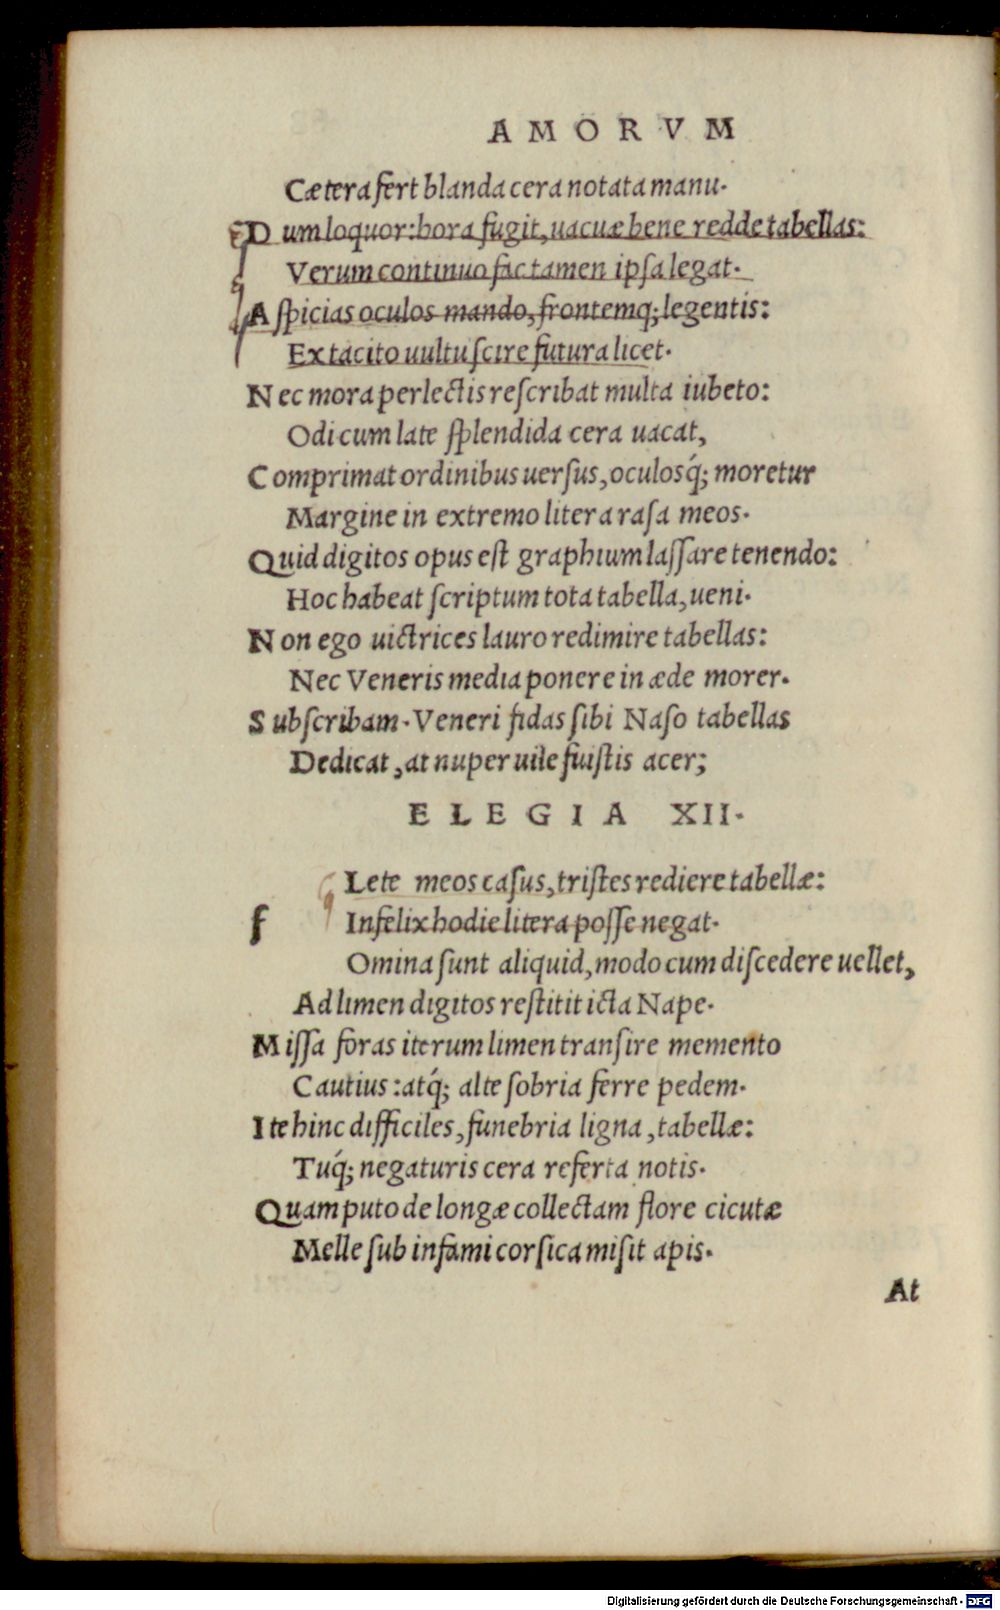 AMORVM
Cætera fert blanda cera notata manu.
Dum loquor: hora fugit, uacuæ bene redde tabellas:
Verum continuo fac tamen ipsa legat.
Aspicias oculos mando, frontemq; legentis:
Ex tacito uultu scire futura licet.
Nec mora perlectis rescribat multa iubeto:
Odi cum late splendida cera uacat,
Comprimat ordinibus uersus, oculosq́; moretur
Margine in extremo litera rasa meos.
Quid digitos opus est graphium lassare tenendo:
Hoc habeat scriptum tota tabella, ueni.
Non ego uictrices lauro redimire tabellas:
Nec Veneris media ponere in æde morer.
Subscribam. Veneri fidas sibi Naso tabellas
Dedicat, at nuper uile fuistis acer;
ELEGIA XII.
fLete meos casus, tristes rediere tabellæ:
Infelix hodie litera posse negat.
Omina sunt aliquid, modo cum discedere uellet,
Ad limen digitos restitit icta Nape.
Missa foras iterum limen transire memento
Cautius: atq́; alte sobria ferre pedem.
Ite hinc difficiles, funebria ligna, tabellæ:
Tuq́; negaturis cera referta notis.
Quam puto de longæ collectam flore cicutæ
Melle sub infami corsica misit apis.
At
Digitalisierung gefördert durch die Deutsche Forschungsgemeinschaft - DFG